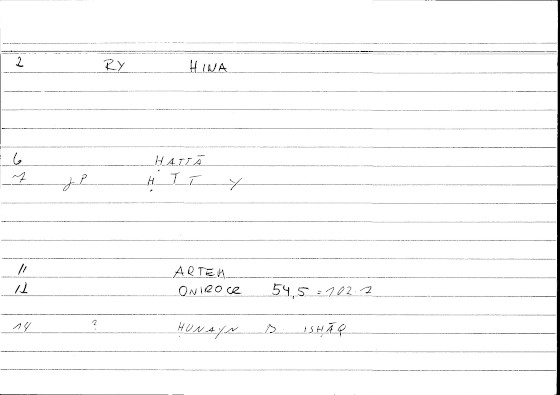 2 RY HINA
6 ḤATTĀ
7 JP Ḥ T T Y
11 ARTEM
12 ONIROCR 54,5 = 102 7
14 ? ḤUNAYN B. ISḤĀQ